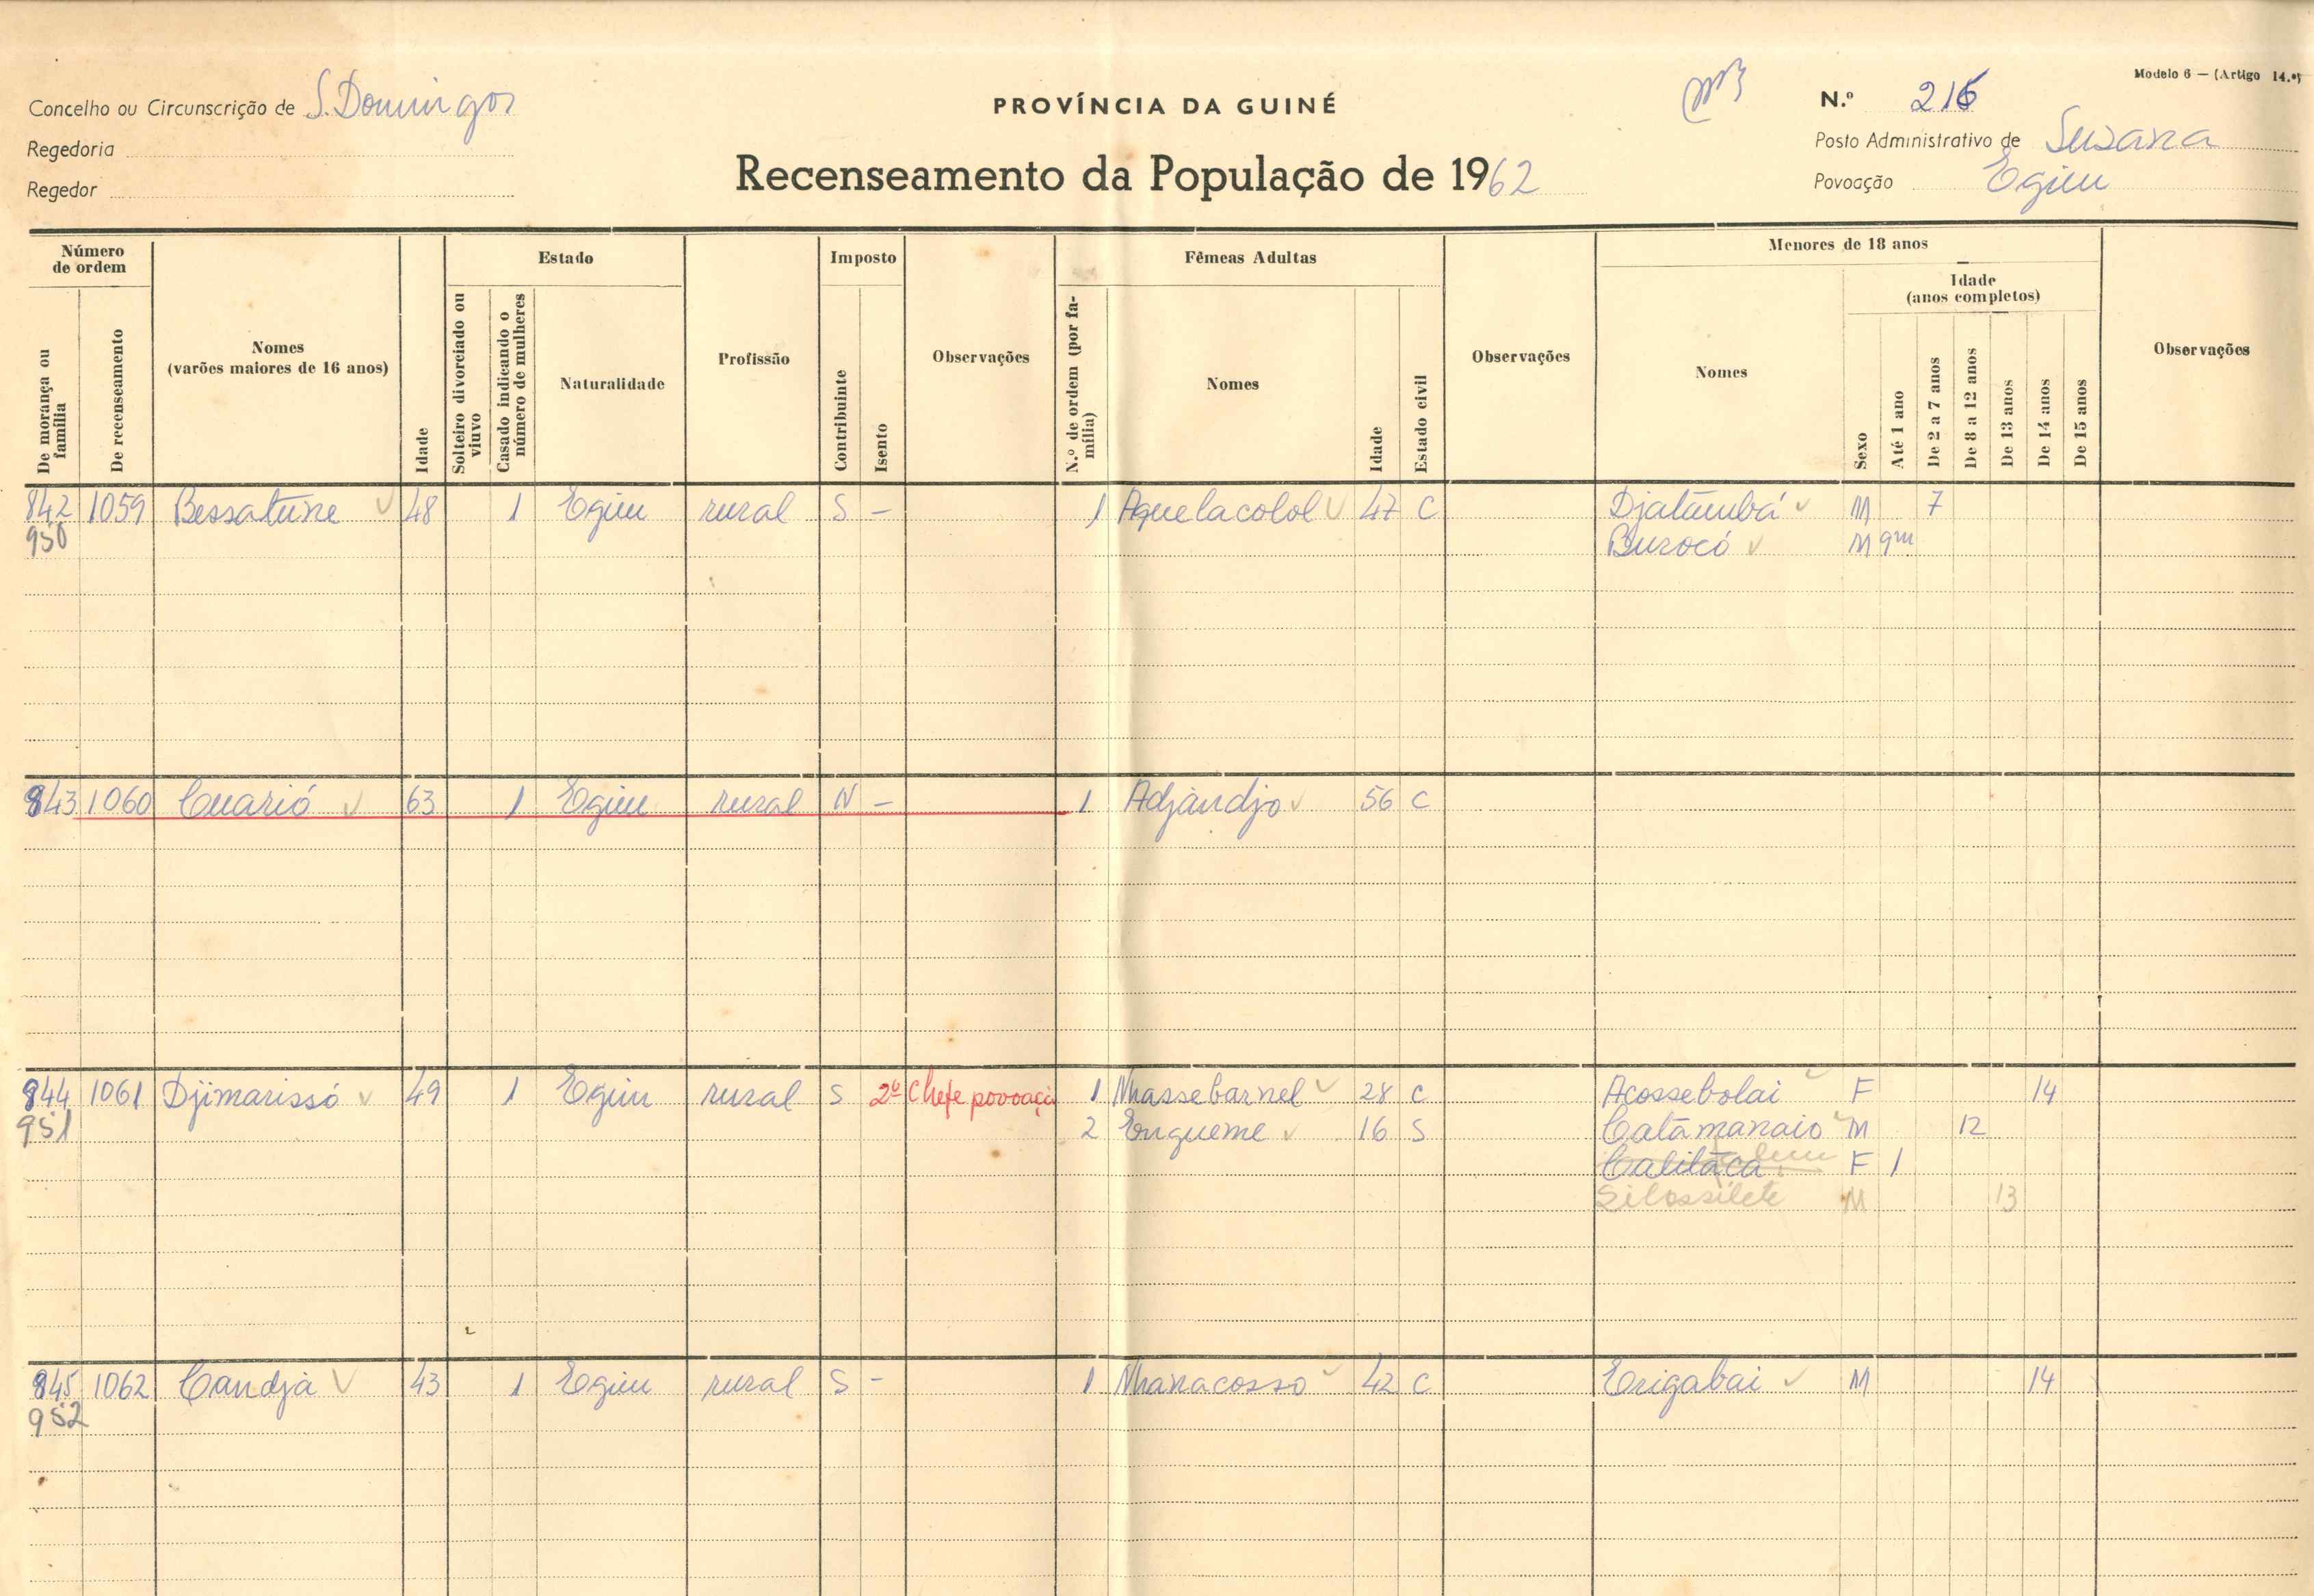 Modelo 6 — (Artigo 14.º)
Concelho ou Circunscrição de S. Domingos
PROVÍNCIA DA GUINÉ
N.º 216
Regedoria
Posto Administrativo de Suzana
Regedor
Recenseamento da População de 1962
Povoação Egim
Número de ordem
De morança ou família
De recenseamento
Nomes
(varões maiores de 16 anos)
Idade
Estado
Solteiro divorciado ou viuvo
Casado indicando o número de mulheres
Naturalidade
Profissão
Imposto
Contribuinte
Isento
Observações
Fêmeas Adultas
N.º de ordem (por família)
Nomes
Idade
Estado civil
Observações
Menores de 18 anos
Nomes
Sexo
Idade
(anos completos)
Até 1 ano
De 2 a 7 anos
De 8 a 12 anos
De 13 anos
De 14 anos
De 15 anos
Observações
842 1059 Bessatune 48 1 Egim rural S – 1 Aquelacolol 47 C Djatãmbá M 7
950 Burocó M 9m
843 1060 Cuarió 63 1 Egim rural N – 1 Adjàndjo 56 C
844 1061 Djimarissó 49 1 Egim rural S 2º Chefe povoaçã 1 Nhassebarnel 28 C Acossebolai F 14
951 2 Engueme 16 S Catãmanaio M 12
Calitaca F 1
Silossilete M 13
845 1062 Candjà 43 1 Egim rural S – 1 Nhanacosso 42 C Erigabai M 14
952